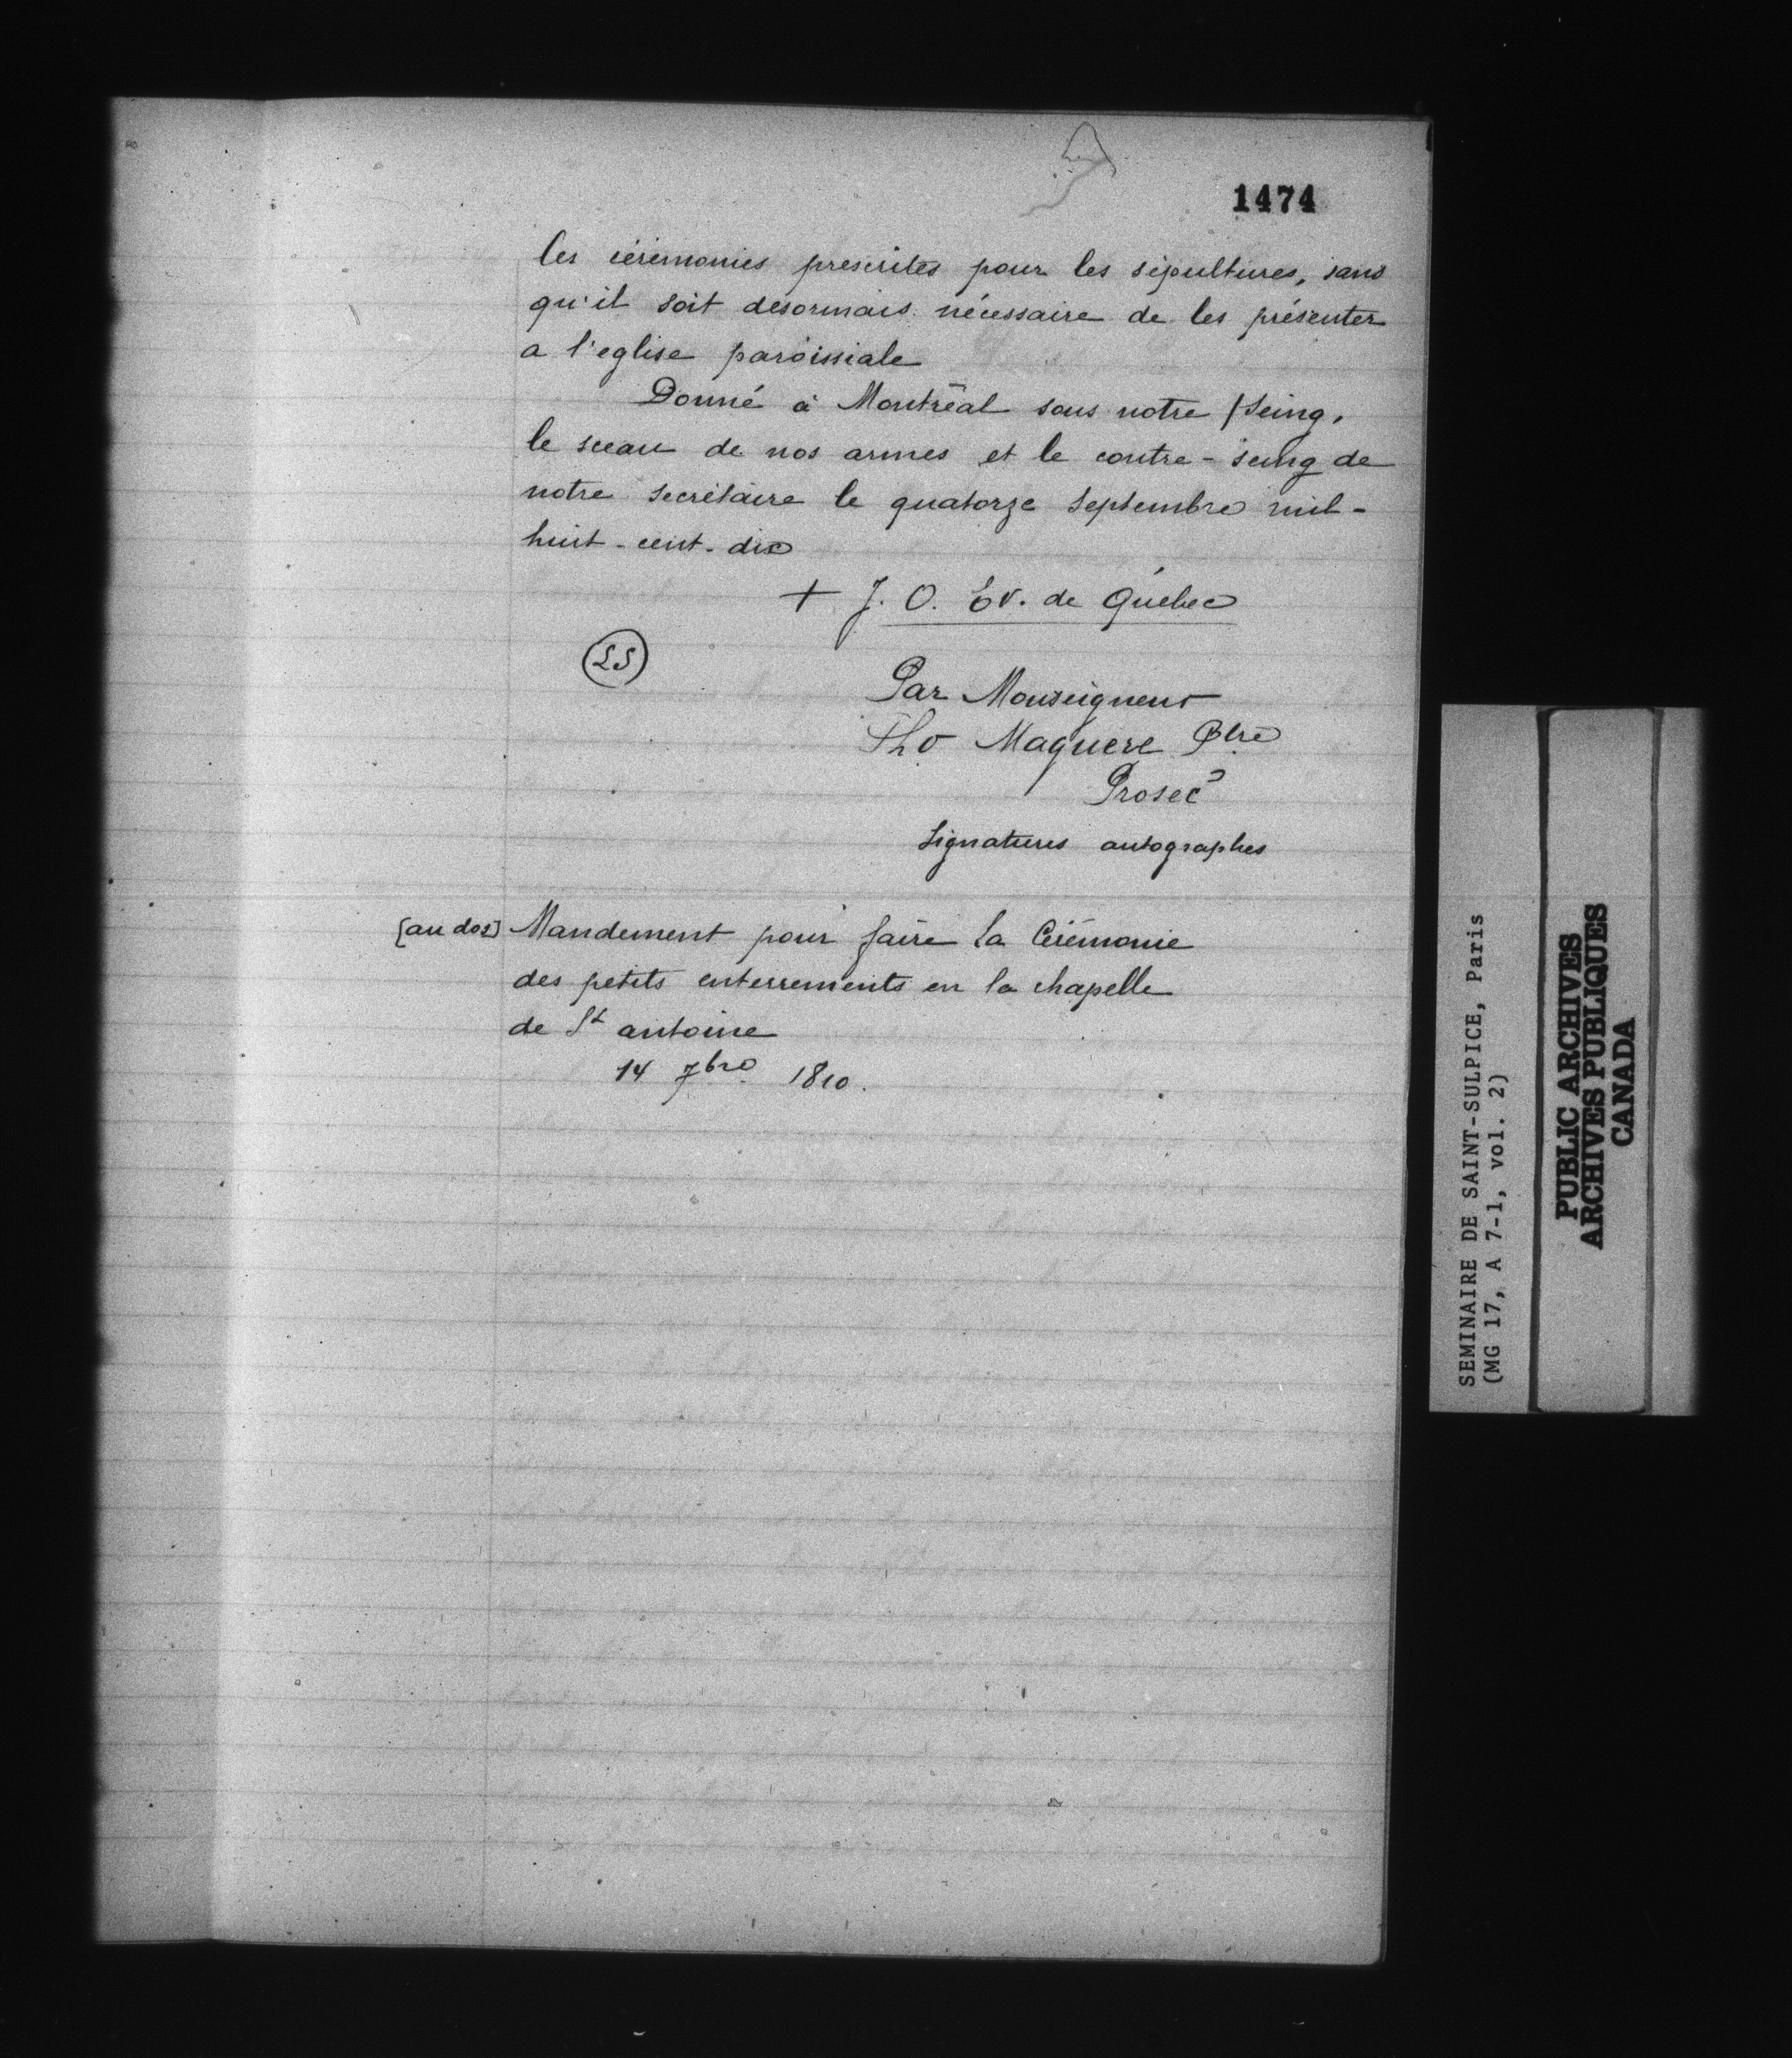 1474
les cérémonies prescrites pour les sépultures, sans
qu'il soit desormais nécessaire de les présenter
a l'eglise paroissiale
Donné à Montréal sous notre seing,
le sceau de nos armes et le contre-seing de
notre secrétaire le quatorze septembre mil-
huit-cent-dix
+ J. O. Ev. de Québec
LS
Par Monseigneur
Tho Maguere Ptre
Prosec
Signatures autographes
[au dos] Mandement pour faire la Cérémonie
des petits enterrements en la chapelle
de St antoine
14 7bre 1810.
SEMINAIRE DE SAINT-SULPICE, Paris
(MG 17, A 7-1, vol. 2)
PUBLIC ARCHIVES
ARCHIVES PUBLIQUES
CANADA